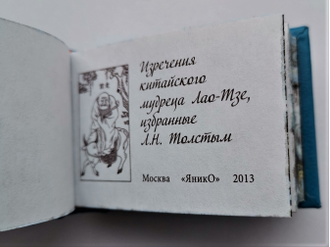 Изречения
китайского
мудреца Лао-Тзе,
избранные
Л.Н. Толстым
Москва «ЯникО» 2013